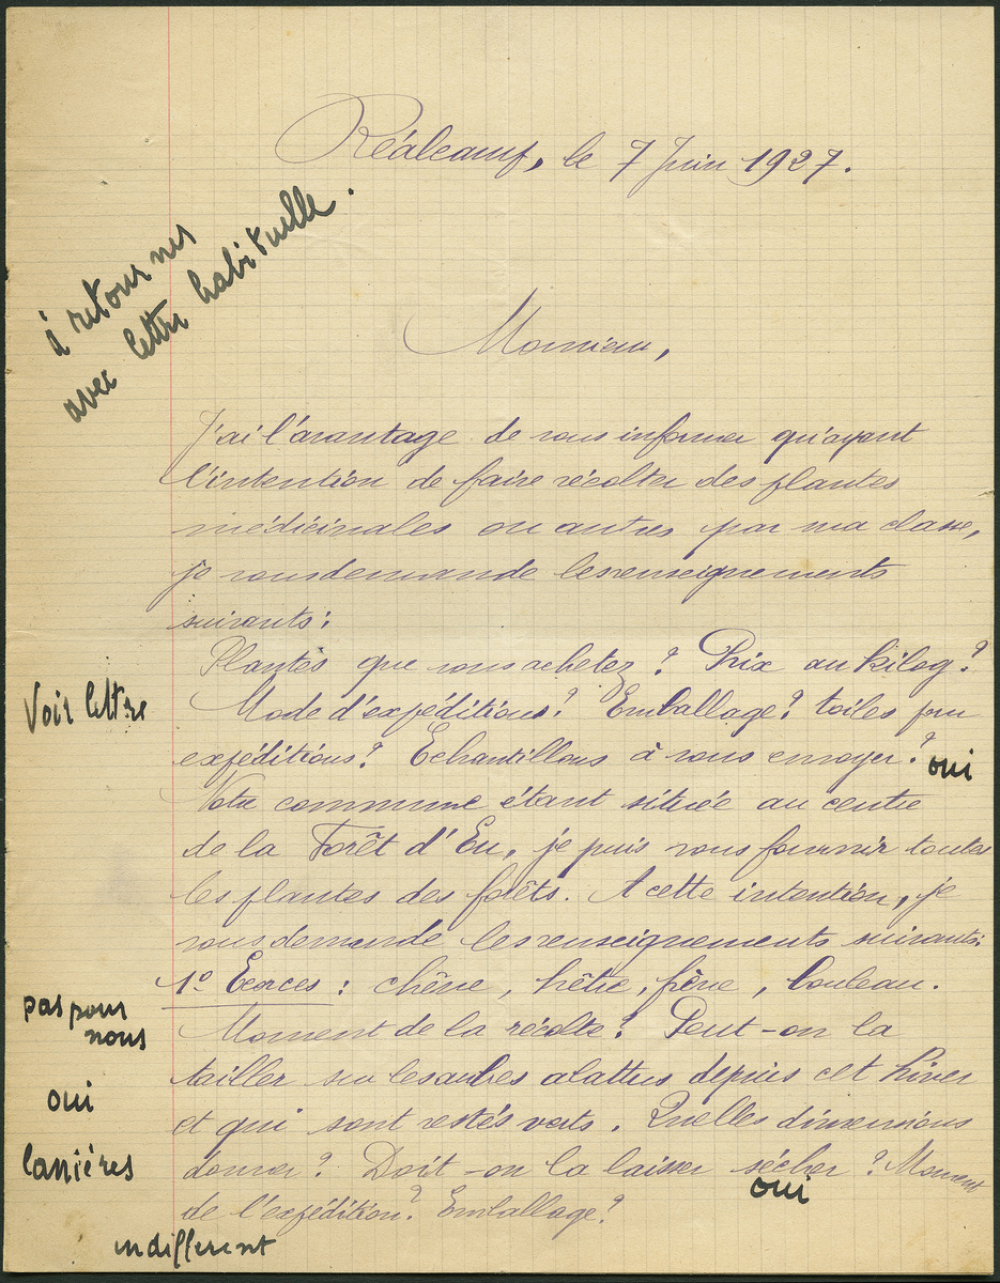 Réalcamp, le 7 Juin 1927.
à retourner
avec lettre habituelle.
Monsieur,
J'ai l'avantage de vous informer qu'ayant
l'intention de faire récolter des plantes
médicinales ou autres par ma classe,
je vous demande les renseignements
suivants :
Plantes que vous achetez ? Prix au kilog ?
Voir lettre
Mode d'expéditions ? Emballage ? toiles pour
expéditions ? Echantillons à vous envoyer ? oui
Notre commune étant située au centre
de la Forêt d'Eu, je puis vous fournir toutes
les plantes des forêts. A cette intention, je
vous demande les renseignements suivants :
1º Ecorces : chêne, hêtre, frêne, bouleau.
pas pour
nous
Moment de la récolte ? Peut-on la
tailler sur les arbres abattus depuis cet hiver
oui
et qui sont restés verts. Quelles dimensions
lanières
donner ? Doit-on la laisser sécher ? Moment
oui
de l'expédition ? Emballage ?
indifférent